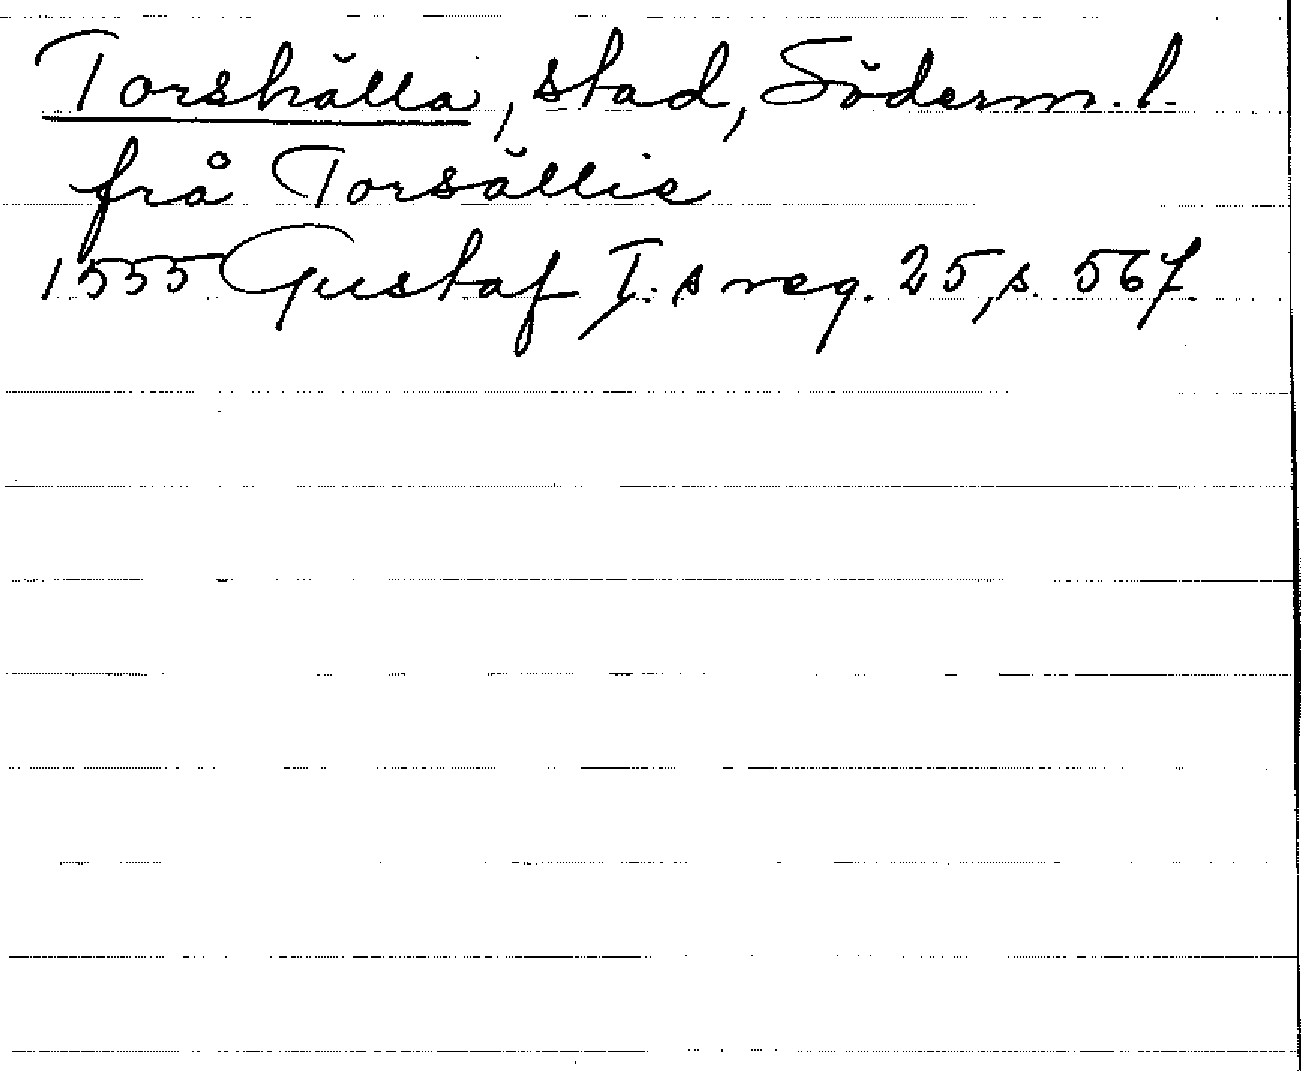 Torshälla, stad, Söderm. l.
frå Torsällie
1555 Gustaf I:s reg. 25, s. 567.